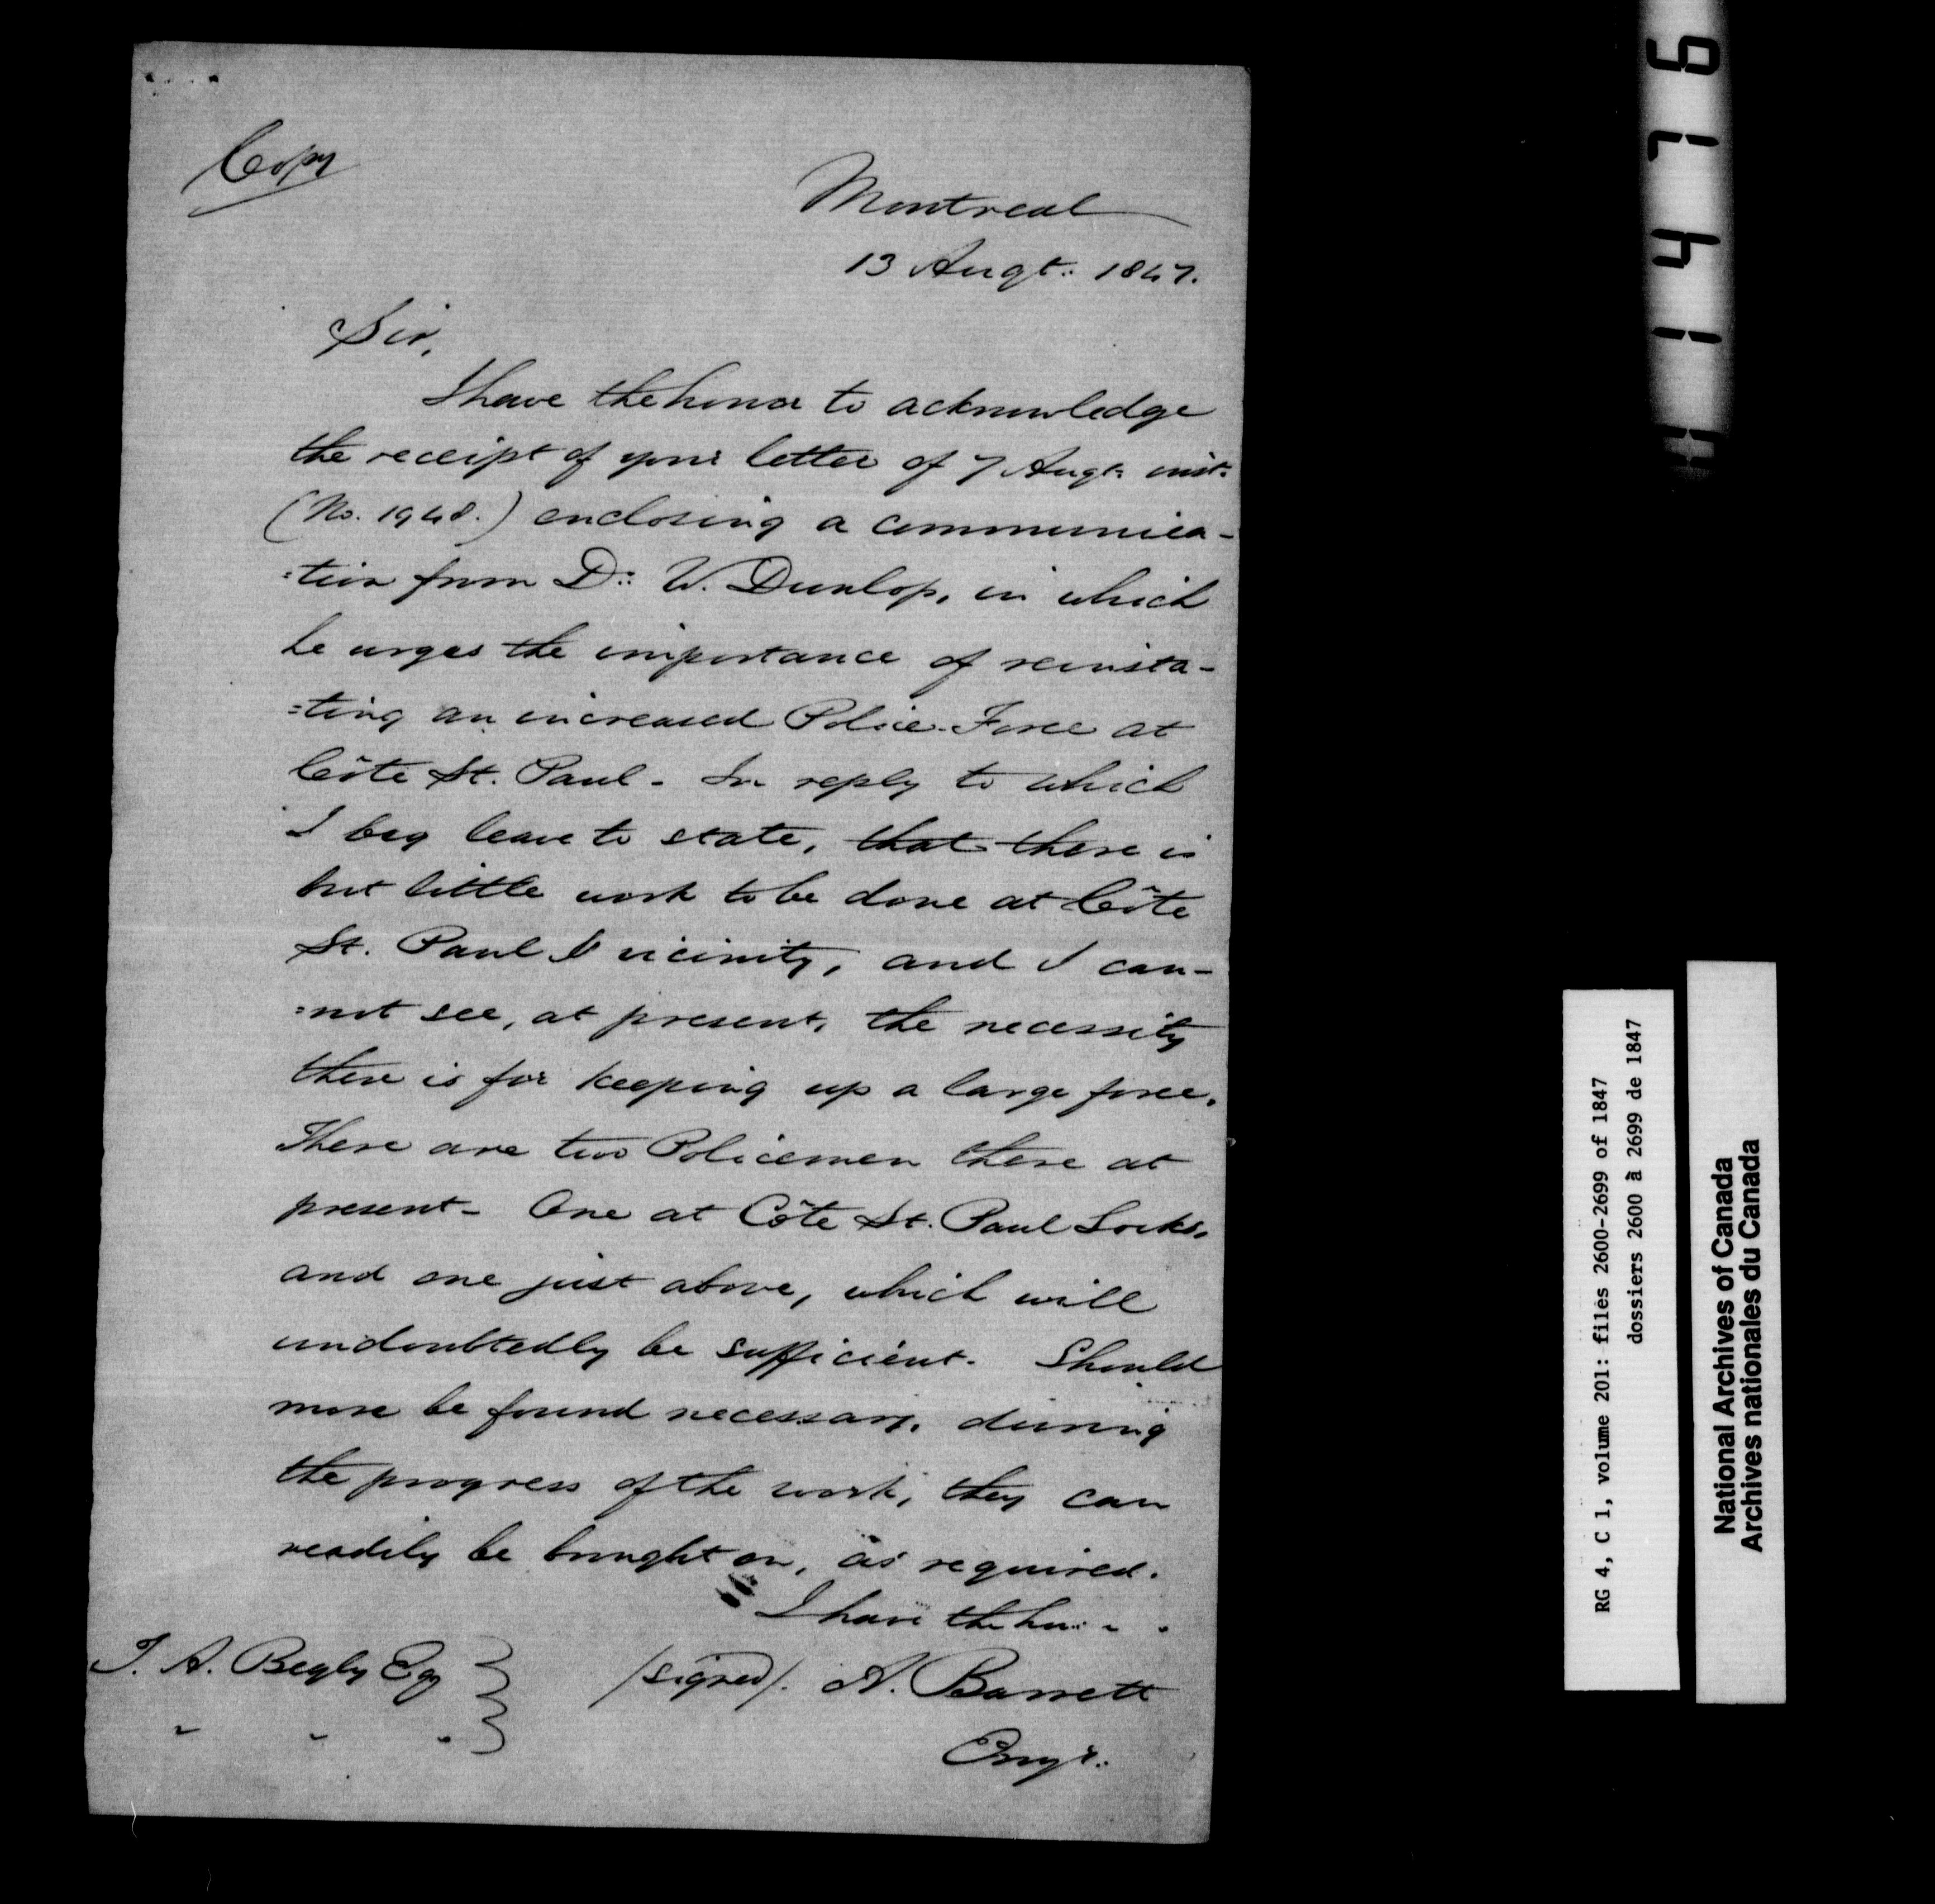 Copy
Montreal
13 Augt: 1847.
Sir,
I have the honor to acknowledge
the receipt of your letter of 7 Augt: inst:
(No. 1948.) enclosing a communica-
=tion from Dr: W. Dunlop, in which
he urges the importance of reinsta-
=ting an increased Police-Force at
Côte St. Paul - In reply to which
I beg leave to state, that there is
but little work to be done at Côte
St. Paul & vicinity, and I can-
=not see, at present, the necessity
there is for keeping up a large force.
There are two Policemen there at
present - One at Côte St. Paul Locks,
and one just above, which will
undoubtedly be sufficient. Should
more be found necessary, during
the progress of the work, they can
readily be brought on, as required.
I have the hon: - .
T. A. Begly Esq
/signed/. A. Barrett
Engr:
11476
RG 4, C 1, volume 201: files 2600-2699 of 1847
dossiers 2600 à 2699 de 1847
National Archives of Canada
Archives nationales du Canada